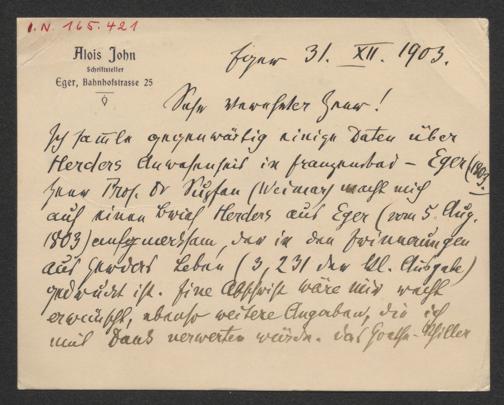 I.N. 165.421
Alois John
Schriftsteller
Eger, Bahnhofstrasse 25
Eger 31. XII. 1903.
Sehr verehrter Herr!
Ich samle gegenwärtig einige Daten über
Herders Anwesenheit in Franzensbad – Eger (1803).
Herr Prof. Dr Suphan (Weimar) macht mich
auf einen Brief Herders aus Eger (vom 5. Aug.
1803) aufmerksam, der in den Erinnerungen
aus Herders Leben (3, 231 der kl. Ausgabe)
gedruckt ist. Eine Abschrift wäre mir recht
erwünscht, ebenso weitere Angaben, die ich
mit Dank verwerten würde. Das Goethe-Schiller